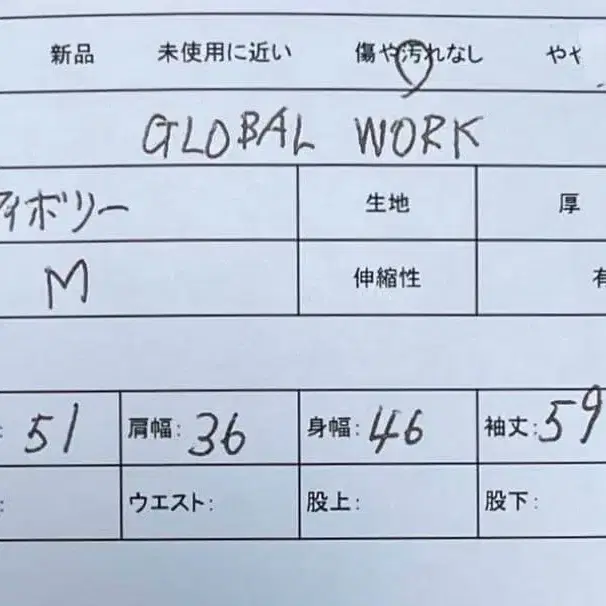 新品 未使用に近い 傷や汚れなし やや
GLOBAL WORK
アイボリー 生地 厚
M 伸縮性 有
: 51 肩幅: 36 身幅: 46 袖丈: 59
: ウエスト: 股上: 股下: